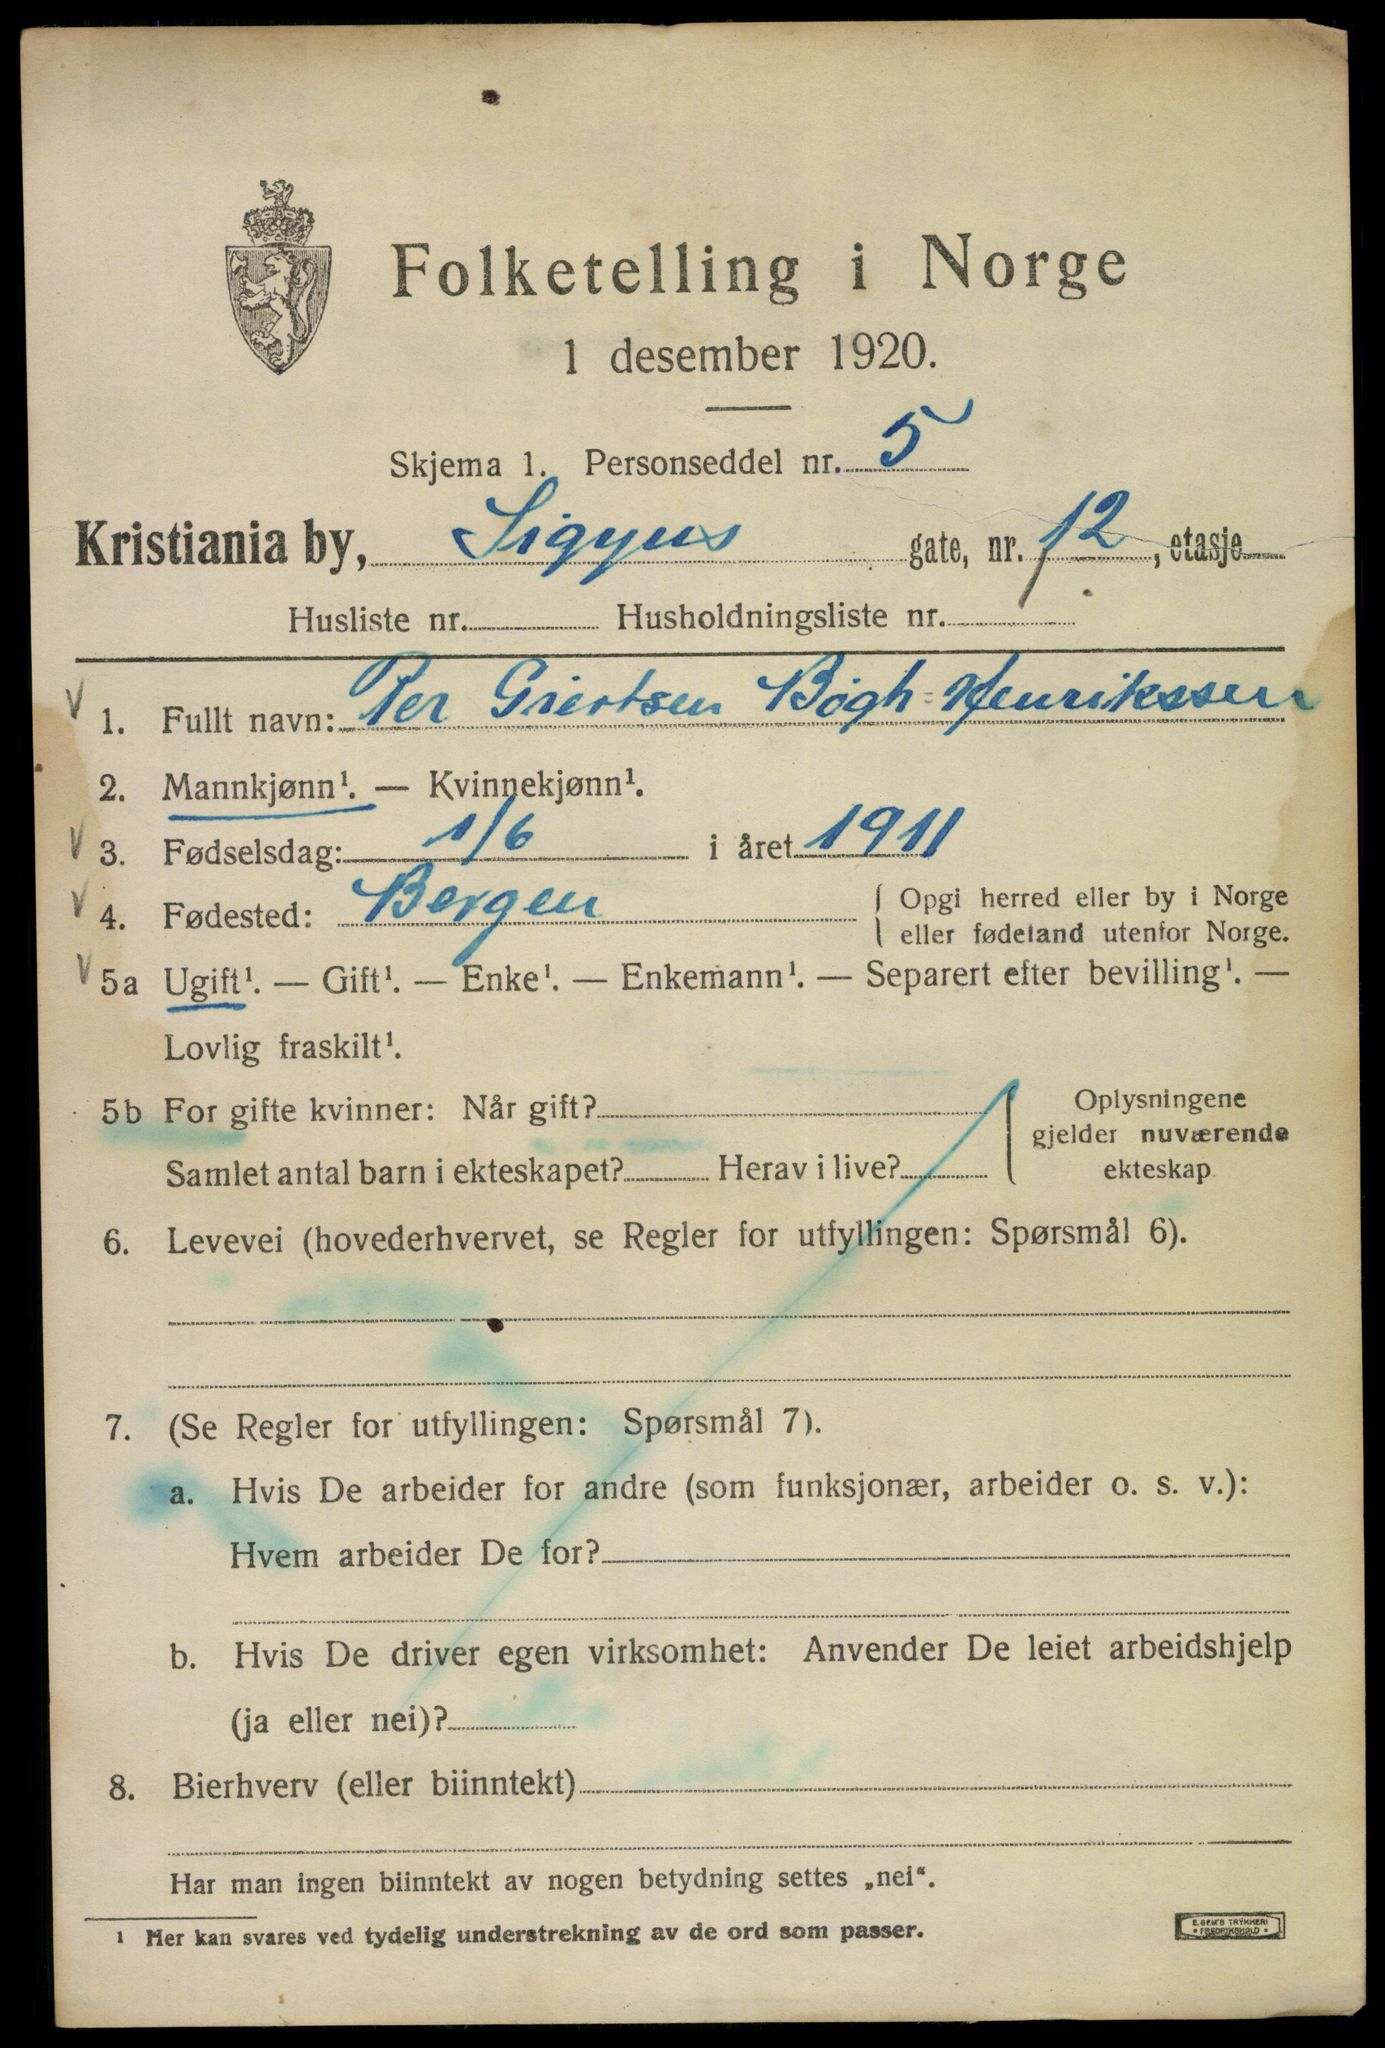 Folketelling i Norge
1 desember 1920.
Skjema 1. Personseddel nr. 5
Kristiania by, Sigyns gate, nr. 12, etasje
Husliste nr. Husholdningsliste nr.
1. Fullt navn: Per Giertsen Bøgh-Henrikssen
2. Mannkjønn¹. — Kvinnekjønn¹.
3. Fødselsdag: 1/6 i året 1911
4. Fødested: Bergen { Opgi herred eller by i Norge
eller fødeland utenfor Norge.
5a Ugift¹. — Gift¹. — Enke¹. — Enkemann¹. — Separert efter bevilling¹. —
Lovlig fraskilt¹.
5b For gifte kvinner: Når gift?
Samlet antal barn i ekteskapet? Herav i live?
Oplysningene
gjelder nuværende
ekteskap
6. Levevei (hovederhvervet, se Regler for utfyllingen: Spørsmål 6).
7. (Se Regler for utfyllingen: Spørsmål 7).
a. Hvis De arbeider for andre (som funksjonær, arbeider o. s. v.):
Hvem arbeider De for?
b. Hvis De driver egen virksomhet: Anvender De leiet arbeidshjelp
(ja eller nei)?
8. Bierhverv (eller biinntekt)
Har man ingen biinntekt av nogen betydning settes „nei“.
¹ Her kan svares ved tydelig understrekning av de ord som passer.
E. SEM'S TRYKKERI
• FREDRIKSHALD •